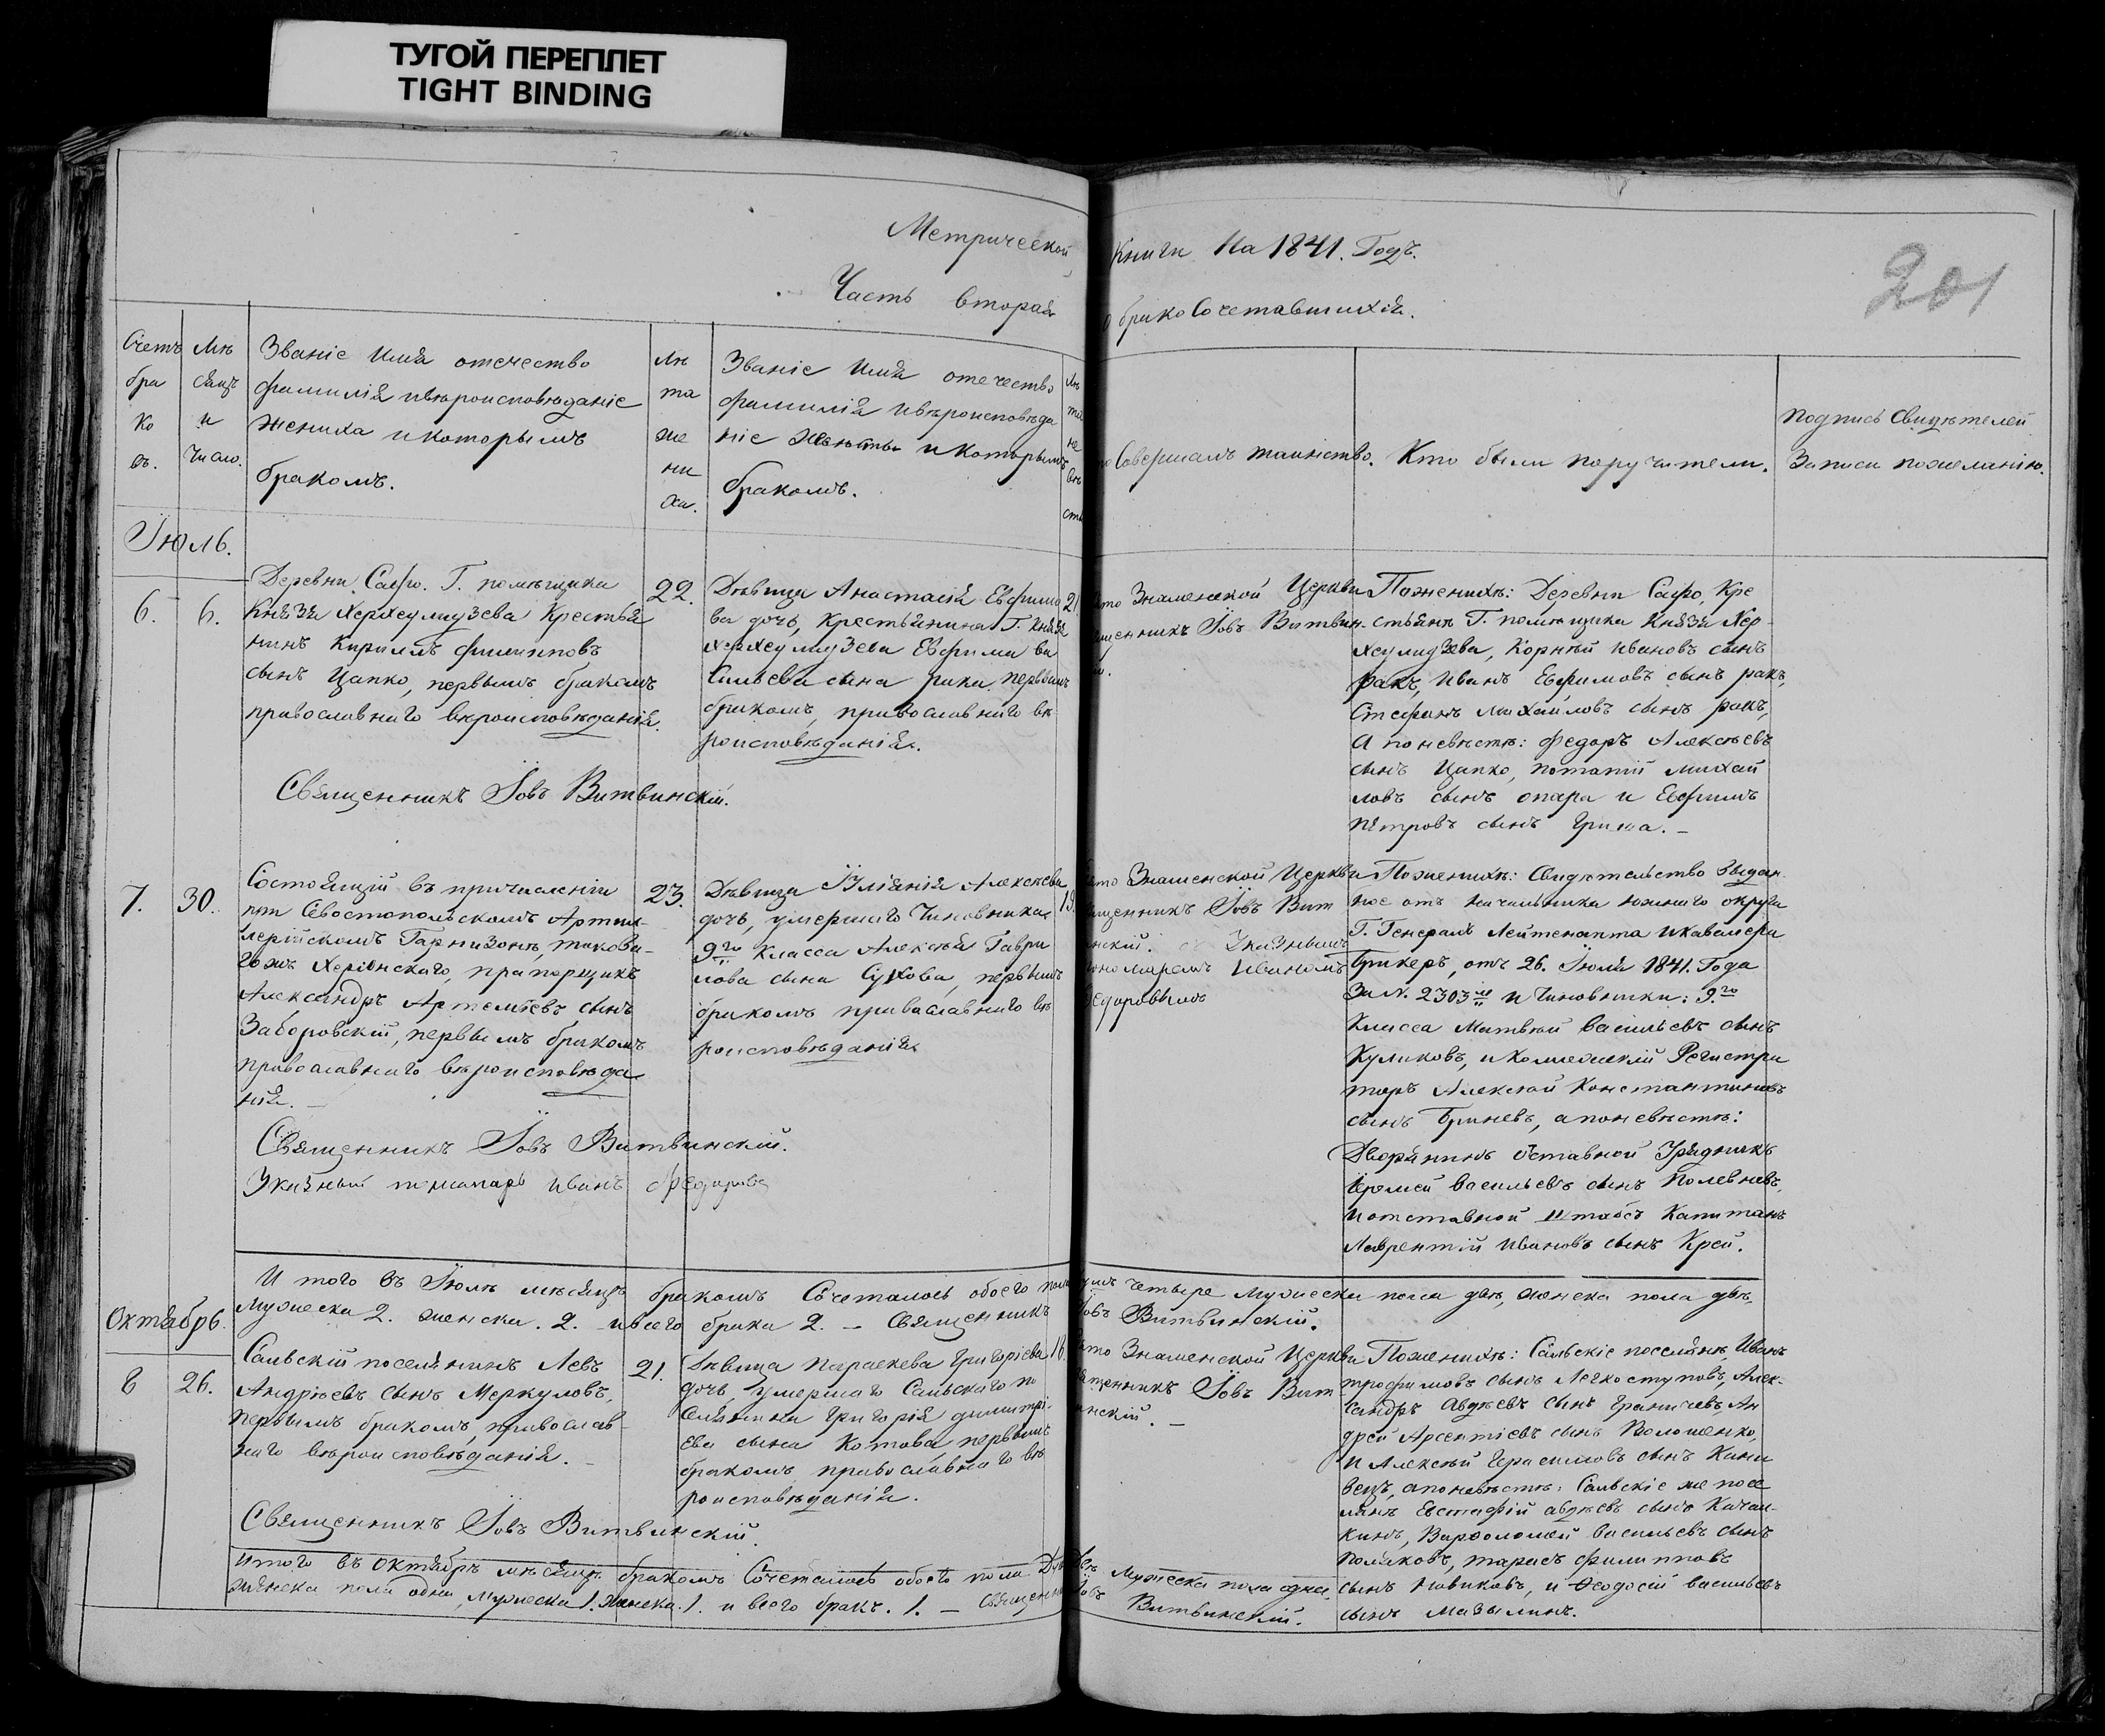 ТУГОЙ ПЕРЕПЛЕТ
TIGHT BINDING
Метрической
Часть вторая
Книги На 1841. Годъ.
о бракоСочетавшихся.
201
Счетъ
бра
ко
въ.
Мѣ
сяцъ
и
Число.
Званіе Имя отечество
фамилія ивѣроисповѣданіе
жениха и которымъ
бракомъ.
Лѣ
та
же
ни
ха.
Званіе Имя отечество
фамилія ивѣроисповѣда
ніе невѣсты и Которымъ
бракомъ.
Лѣ
та
не
вѣ
сты
Совершалъ таинство.
Кто были поручители.
подпись Свидѣтелей
Записи пожеланію.
Іюль.
6.
6.
Деревни Сафо. Г. помѣщика
Князя Херхеулидзева Крестья
нинъ Кириллъ филиповъ
сынъ Цапко, первымъ бракомъ
православнаго вѣроисповѣданія.
22.
Дѣвица Анастасія Евфимо
ва дочь, Крестьянина Г. Князя
Херхеулидзева Евфима ва
сильева сына рака первымъ
бракомъ, православнаго вѣ
роисповѣданія.
21
Знаменской Церкви
Іовъ Витвин
Поженихѣ: Деревни Сафо, Кре
стьянѣ Г. помѣщика Князя Хер-
хеулидзева, Корнѣй ивановъ сынъ
ракъ, иванъ Евфимовъ сынъ ракъ,
Стефанъ михайловъ сынъ ракъ,
А поневѣстѣ: федоръ Алексѣевъ
сынъ Цапко, потапій михай
ловъ сынъ опара и Евфимъ
петровъ сынъ
Священникъ Іовъ Витвинскій.
7.
30.
Состоящій въ причисленіи
при Севостопольскомъ Артил-
лерійскомъ Гарнизонѣ, таково-
гожъ Херсонскаго, прапорщикъ
Александръ Артемьевъ сынъ
Заборовскій, первымъ бракомъ
православнаго вѣроисповѣда
нія.
23.
Дѣвица Іуліянія Алексѣева
дочь, умершаго Чиновника
9го Класса Алексѣя Гаври
лова сына Сухова, первымъ
бракомъ православнаго вѣ
роисповѣданія
Знаменской Церкви
Іовъ Вит
Указнымъ
Иваномъ
Федоровымъ
Поженихѣ: Свидѣтельство выдан
ное отъ начальника южнаго округа
Г. Генералъ Лейтенанта икавалера
отъ 26. Іюля 1841. Года
За N. 2303м и Чиновники: 9.го
Класса Матвѣй васильевъ сынъ
Куликовъ, и Коллежскій Регистра
торъ Алексѣй Константиновъ
сынъ Гриневъ, а поневѣстѣ:
Дворянинъ Оставной Урядникъ
васильевъ сынъ
иотставной Штабсъ Капитанъ
Лаврентій ивановъ сынъ Крей.
Священникъ Іовъ Витвинскій.
Указный понамарь иванъ Федоровъ
И того въ Іюлѣ мѣсяцѣ бракомъ Сочеталось обоего пола четыре мужеска пола двѣ, женска пола двѣ,
мужеска 2. женска. 2. ивсего брака 2. – Священникъ Іовъ Витвинскій.
Октябрь.
8
26.
Сальскій поселянинъ Левъ
Андрѣевъ сынъ Меркуловъ,
первымъ бракомъ, православ-
наго вѣроисповѣданія.
21.
Дѣвица параскева Григоріева
дочь, умершаго Сальскаго по
селянина Григорія димитрі-
Ева сына Котова первымъ
бракомъ православнаго вѣ
роисповѣданія.
18.
Знаменской Церкви
Іовъ Вит
Поженихѣ: Сальскіе поселянѣ, Иванъ
трофимовъ сынъ Легкоступовъ, Алек-
сандръ авдѣевъ сынъ Граничевъ, Ан
дрей Арсентіевъ сынъ
и Алексѣй Герасимовъ сынъ
апоневѣстѣ: Сальскіе же посе
лянѣ Евстафій авдѣевъ сынъ
Варфоломей васильевъ сынъ
Поляковъ, тарасъ филипповъ
сынъ Новиковъ, и Феодосій васильевъ
сынъ
Священникъ Іовъ Витвинскій.
Итого въ Октябрѣ мѣсяцѣ бракомъ Сочеталось обоего пола Двѣ Мужеска пола одна
женска пола одна, мужеска 1. женска. 1. и всего бракъ. 1. – Священникъ Іовъ Витвинскій.